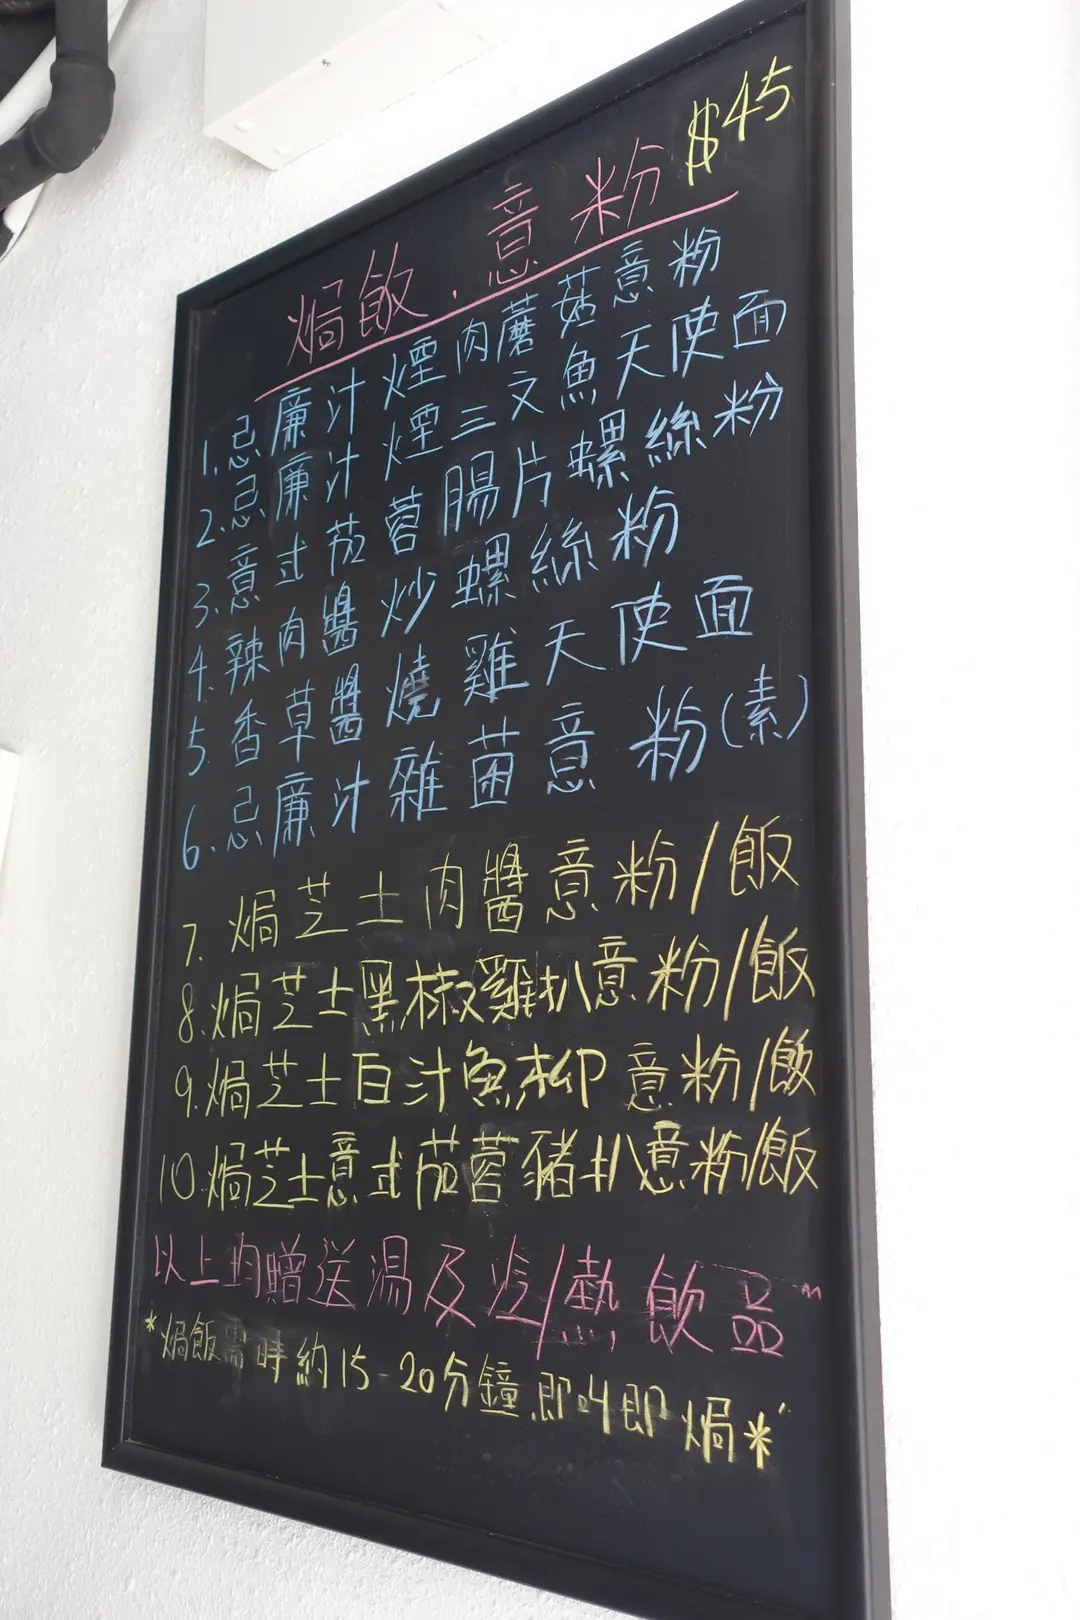 焗飯.意粉 $45
1.忌廉汁煙肉蘑菇意粉
2.忌廉汁煙三文魚天使面
3.意式茄蓉腸片螺絲粉
4.辣肉醬炒螺絲粉
5.香草醬燒雞天使面
6.忌廉汁雜菌意粉(素)
7.焗芝士肉醬意粉/飯
8.焗芝士黑椒雞扒意粉/飯
9.焗芝士白汁魚柳意粉/飯
10.焗芝士意式茄蓉豬扒意粉/飯
以上均贈送湯及冷/熱飲品
*焗飯需時約15-20分鐘,即叫即焗*